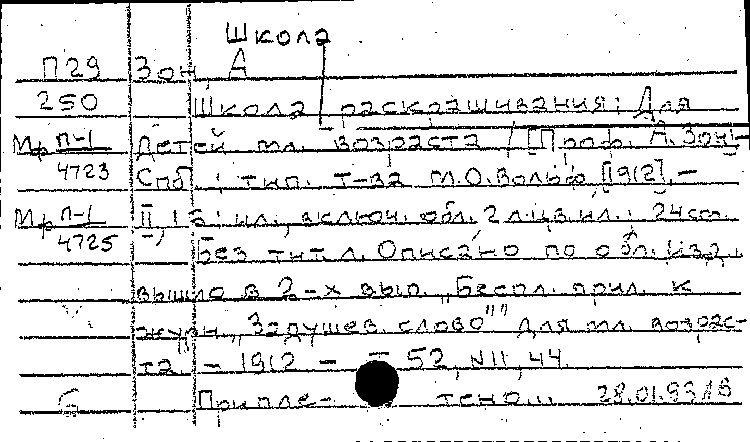 Школа
П29 Зон, А
250 Школа раскрашивания: Для
Мр П-1 детей мл. возраста / [Проф. А. Зон]. -
4723 Спб.: тип. т-ва М.О. Вольф, [1912]. -
Мр П-1 II, 15: ил., включ. обл., 2 л. цв. ил.; 24 см.
4725 Без тит. л. Описано по обл. Изд.
вышло в 2-х вып. „Беспл. прил. к
журн. „Задушев. слово"" для мл. возрас-
та. - 1912 - Т. 52, N 11, 44.
Б Приплетено... 28.01.93